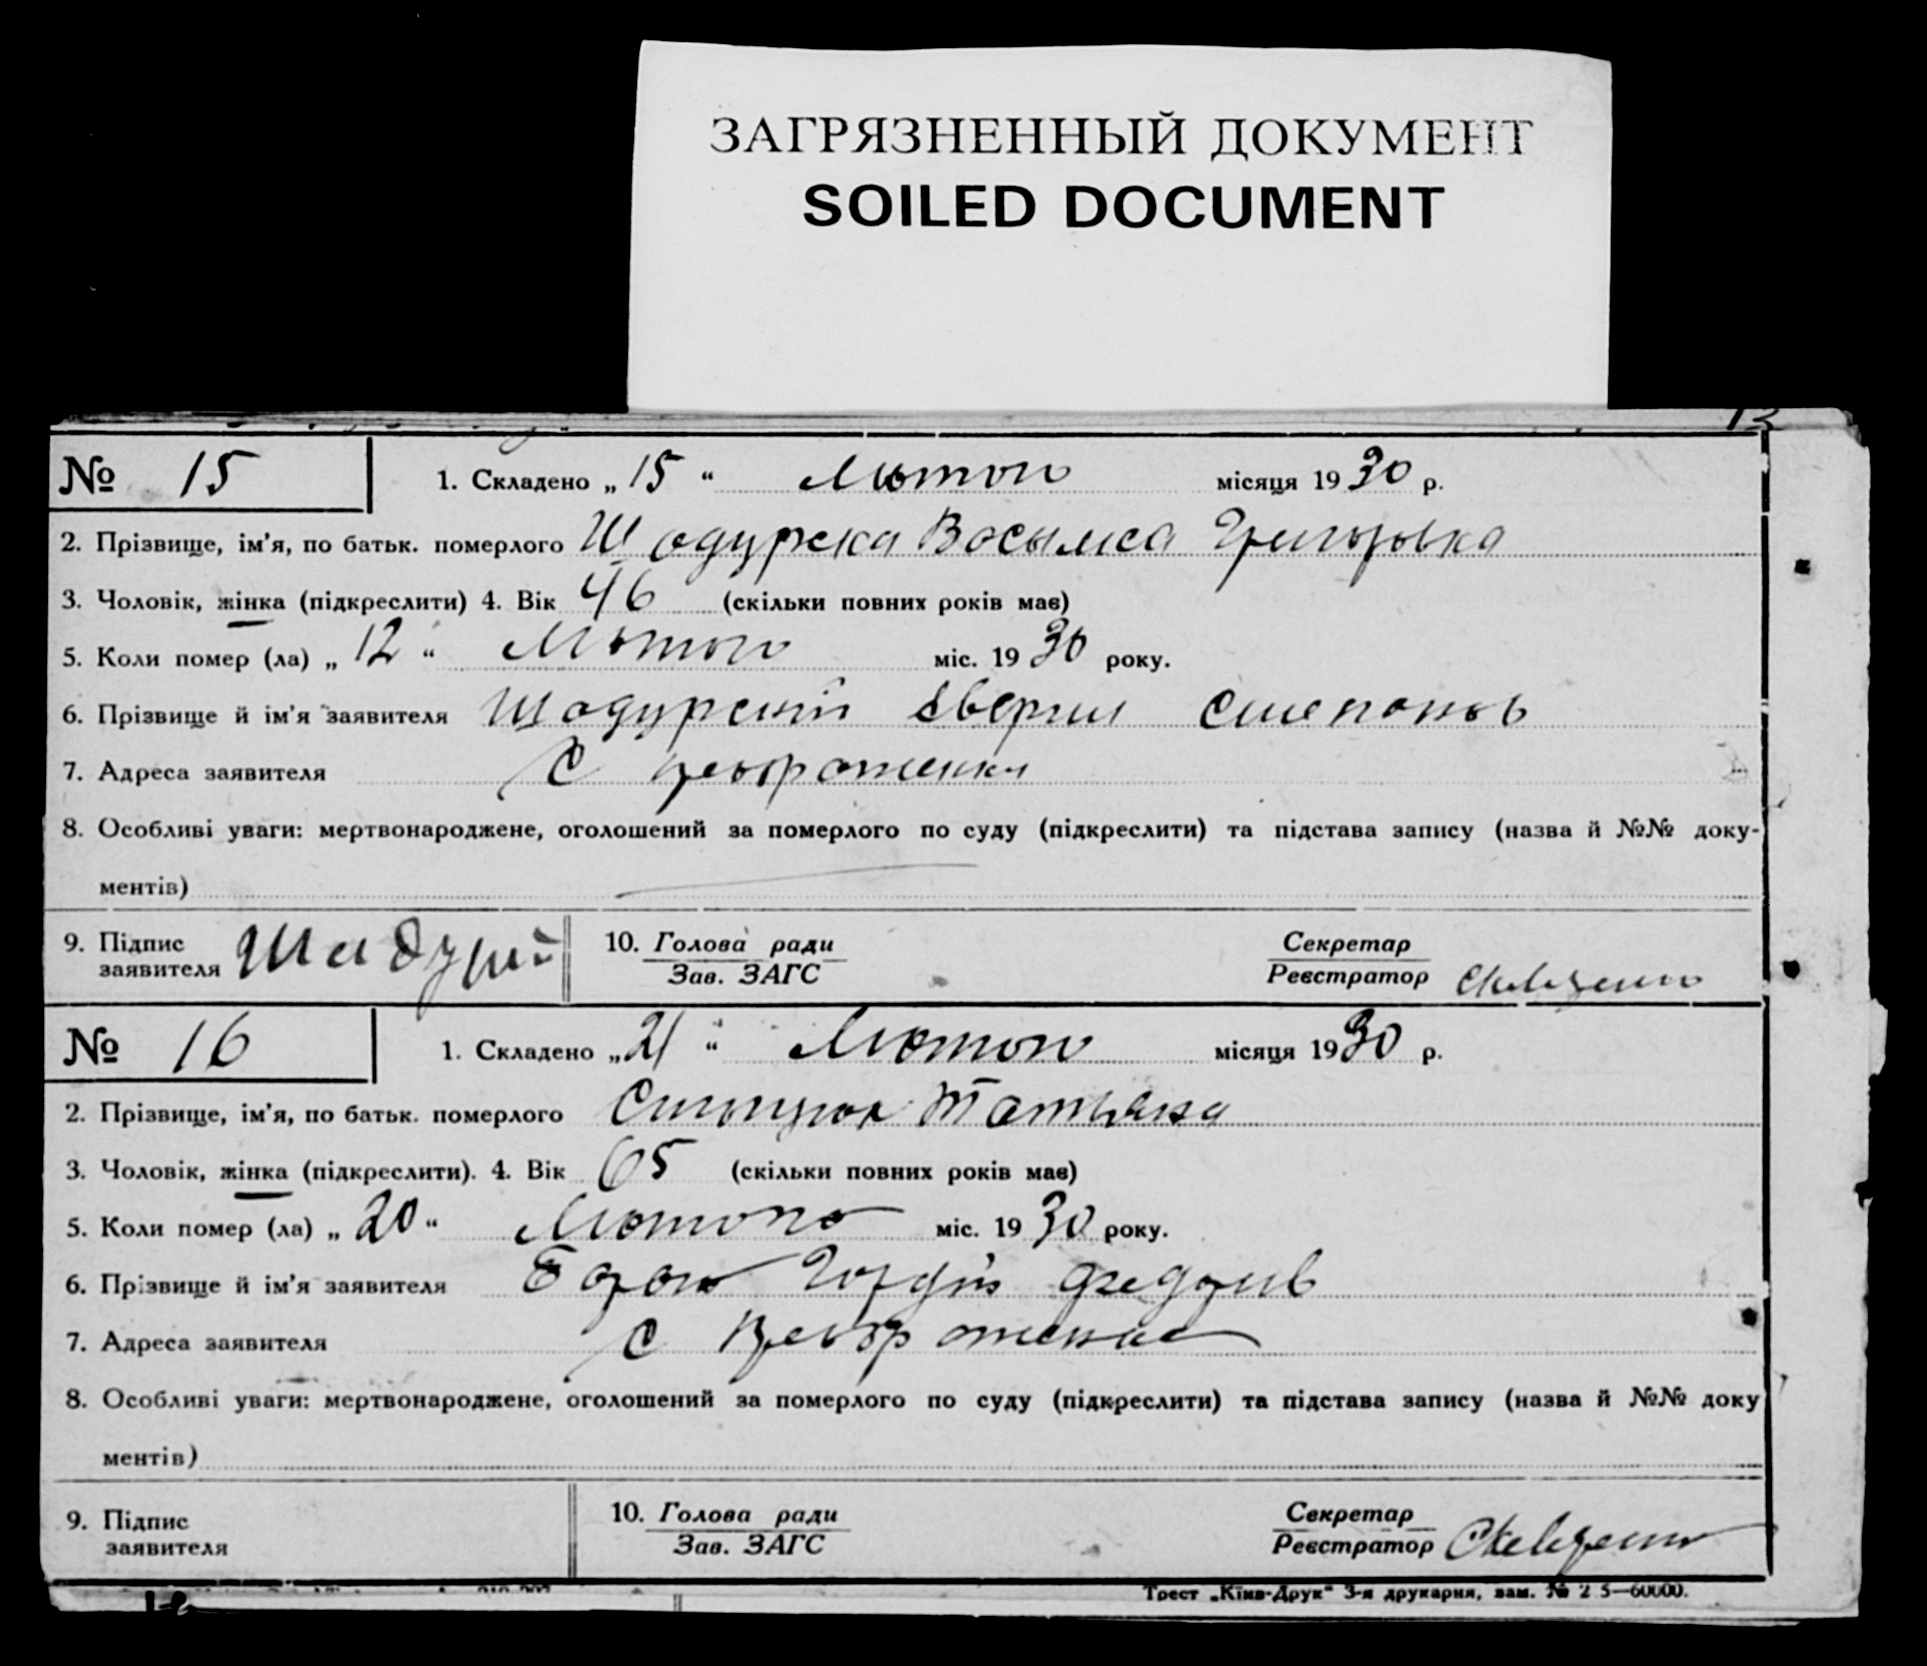 ЗАГРЯЗНЕННЫЙ ДОКУМЕНТ
SOILED DOCUMENT
13
№ 15 1. Складено „ 15 “ Лютого місяця 1930 р.
2. Прізвище, ім'я, по батьк. померлого Шадурска Григоровна
3. Чоловік, жінка (підкреслити) 4. Вік 46 (скільки повних років має)
5. Коли помер (ла) „ 12 “ Лютого міс. 1930 року.
6. Прізвище й ім'я заявителя Шадурский Степанов
7. Адреса заявителя С
8. Особливі уваги: мертвонароджене, оголошений за померлого по суду (підкреслити) та підстава запису (назва й №№ доку-
ментів)
9. Підпис 10. Голова ради Секретар
заявителя Зав. ЗАГС Реєстратор
№ 16 1. Складено „ 21 “ Лютого місяця 1930 р.
2. Прізвище, ім'я, по батьк. померлого Татьяна
3. Чоловік, жінка (підкреслити). 4. Вік 65 (скільки повних років має)
5. Коли помер (ла) „ 20 “ Лютого міс. 1930 року.
6. Прізвище й ім'я заявителя Гордій
7. Адреса заявителя С
8. Особливі уваги: мертвонароджене, оголошений за померлого по суду (підкреслити) та підстава запису (назва й №№ доку
ментів)
9. Підпис 10. Голова ради Секретар
заявителя Зав. ЗАГС Реєстратор
Трест „Київ-Друк“ 3-я друкарня, зам. №